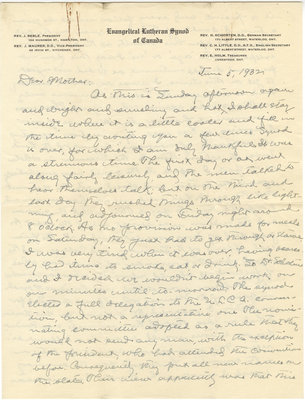 Evangelical Lutheran Synod
of Canada
REV. J. REBLE, PRESIDENT
HAMILTON, ONT.
REV. J. MAURER, D.D., VICE-PRESIDENT
KITCHENER, ONT.
REV. O. SCHROETER, D.D., GERMAN SECRETARY
ALBERT STREET, WATERLOO, ONT.
REV. C. H. LITTLE, D.D., S.T.D., ENGLISH SECRETARY
ALBERT STREET, WATERLOO, ONT.
REV. E. HOLM, TREASURER
June 5, 1932
Dear Mother:
As this is Sunday afternoon again
and bright and sunshiny and hot, I shall stay
inside where it is a little cooler and fill in
the time by writing you a few lines. Synod
is over, for which I am duly thankful. It was
a strenuous time. The first day or so went
along fairly leisurely and the men talked to
hear themselves talk, but on the third and
last day they rushed things through like light-
ning and adjourned on Sunday night around
8 o'clock. As no provision was made for meals
on Sunday, they just had to get through or leave.
I was very tired when it was over, having scarce-
ly had time to smoke, eat or drink. So Dr. Schroeter
and I decided we wouldn't begin work on
our minutes until the morning. The synod
elected a full delegation to the U.L.C.A. conven-
tion, but not a representative one. The nomi-
nating committee adopted as a rule that they
would not send any man, with the exception
of the president, who had attended the Convention
before. Consequently they put all new names on
the slate. Their view apparently was that this